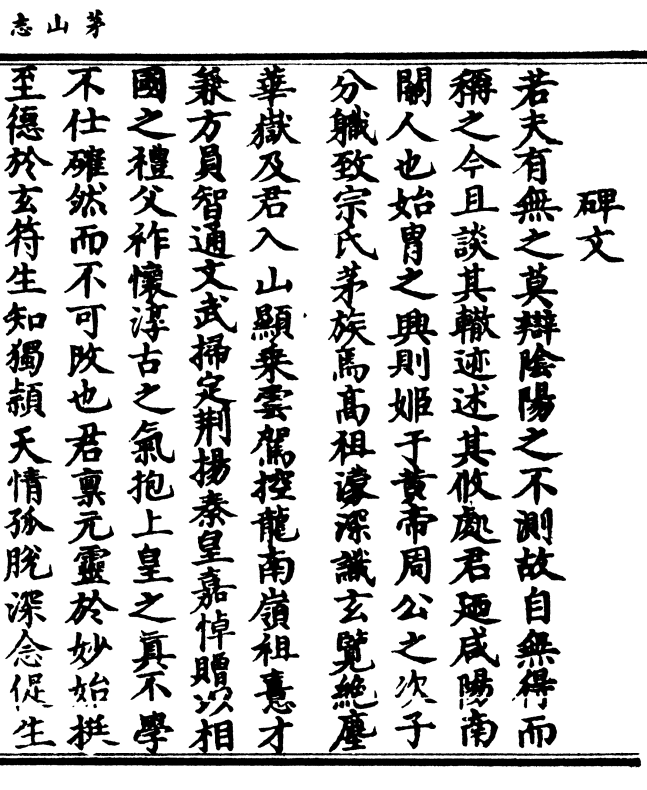 茅山志
碑文
若夫有無之莫辯陰陽之不測故自無得而
稱之今且談其轍迹述其攸處君廼咸陽南
關人也始胄之興則姬于黄帝周公之次子
分軄致宗氏茅族焉高祖濛深識玄覽絶塵
華嶽及君入山顯乗雲駕控龍南嶺祖憙才
兼方員智通文武掃定荆揚秦皇嘉悼贈以相
國之禮父祚懷淳古之氣抱上皇之真不學
不仕確然而不可攺也君禀元靈於妙始挺
至德於玄符生知獨穎天情孤脫深念促生